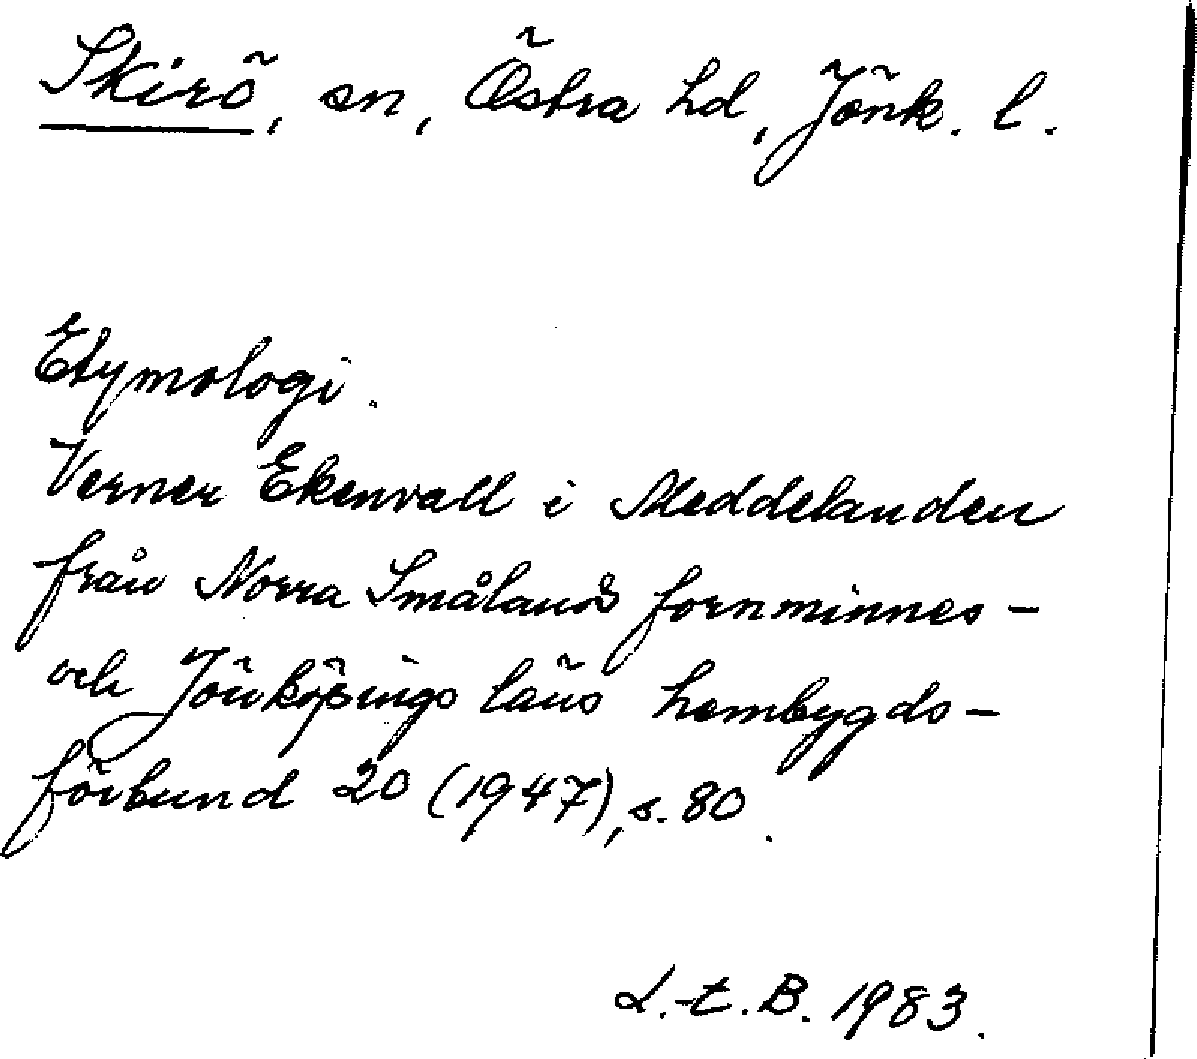 Skirö, sn, Östra hd, Jönk. l.
Etymologi.
Verner Ekenvall i Meddelanden
från Norra Smålands fornminnes-
och Jönköpings läns hembygds-
förbund 20 (1947), s. 80.
L.-t. B. 1983.